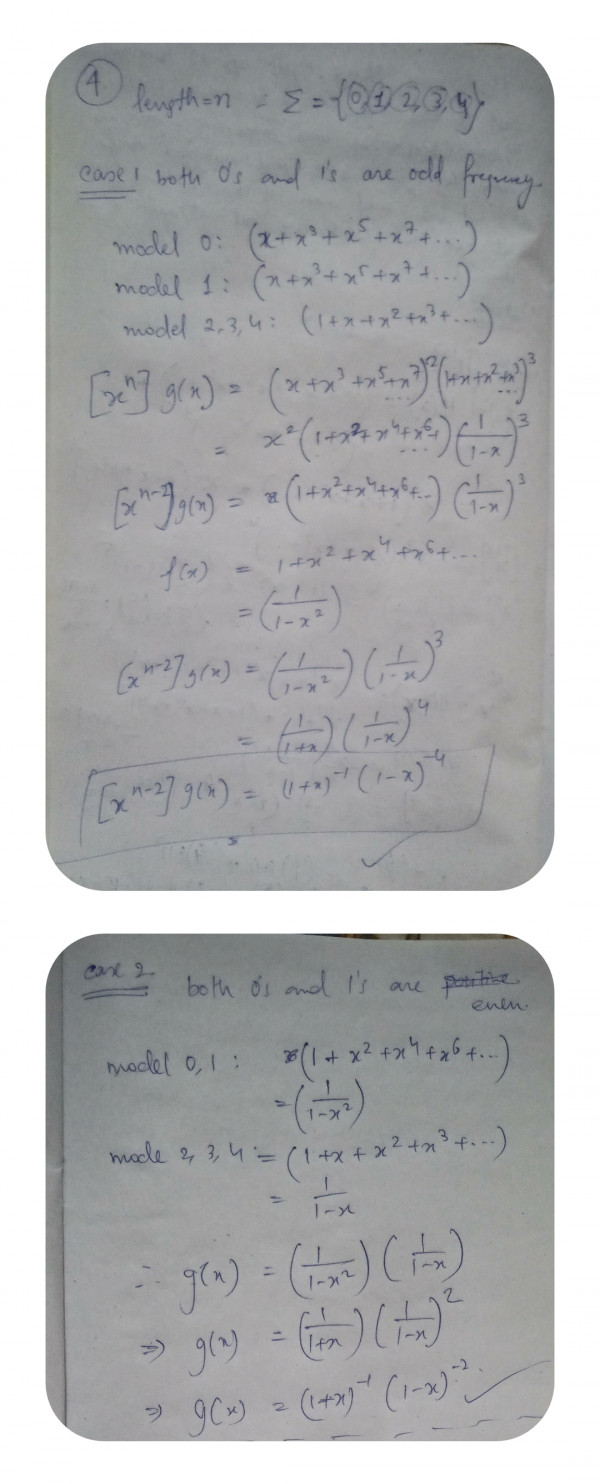 4 length=n - Σ = {0,1,2,3,4}
case 1 both 0's and 1's are odd frequency
model 0: (x+x³+x⁵+x⁷+...)
model 1: (x+x³+x⁵+x⁷+...)
model 2,3,4: (1+x+x²+x³+...)
[xⁿ] g(x) = (x+x³+x⁵+x⁷...)²(1+x+x²+x³...)³
= x²(1+x²+x⁴+x⁶+...)(1/(1-x))³
[xⁿ⁻²]g(x) = (1+x²+x⁴+x⁶+..) (1/(1-x))³
f(x) = 1+x²+x⁴+x⁶+...
= (1/(1-x²))
[xⁿ⁻²]g(x) = (1/(1-x²)) (1/(1-x))³
= (1/(1+x)) (1/(1-x))⁴
[xⁿ⁻²] g(x) = (1+x)⁻¹ (1-x)⁻⁴
=
case 2 both 0's and 1's are positive
even.
model 0,1: (1+x²+x⁴+x⁶+...)
= (1/(1-x²))
mode 2,3,4 := (1+x+x²+x³+...)
= 1/(1-x)
∴ g(x) = (1/(1-x²)) (1/(1-x))
⇒ g(x) = (1/(1+x)) (1/(1-x))²
⇒ g(x) = (1+x)⁻¹ (1-x)⁻².